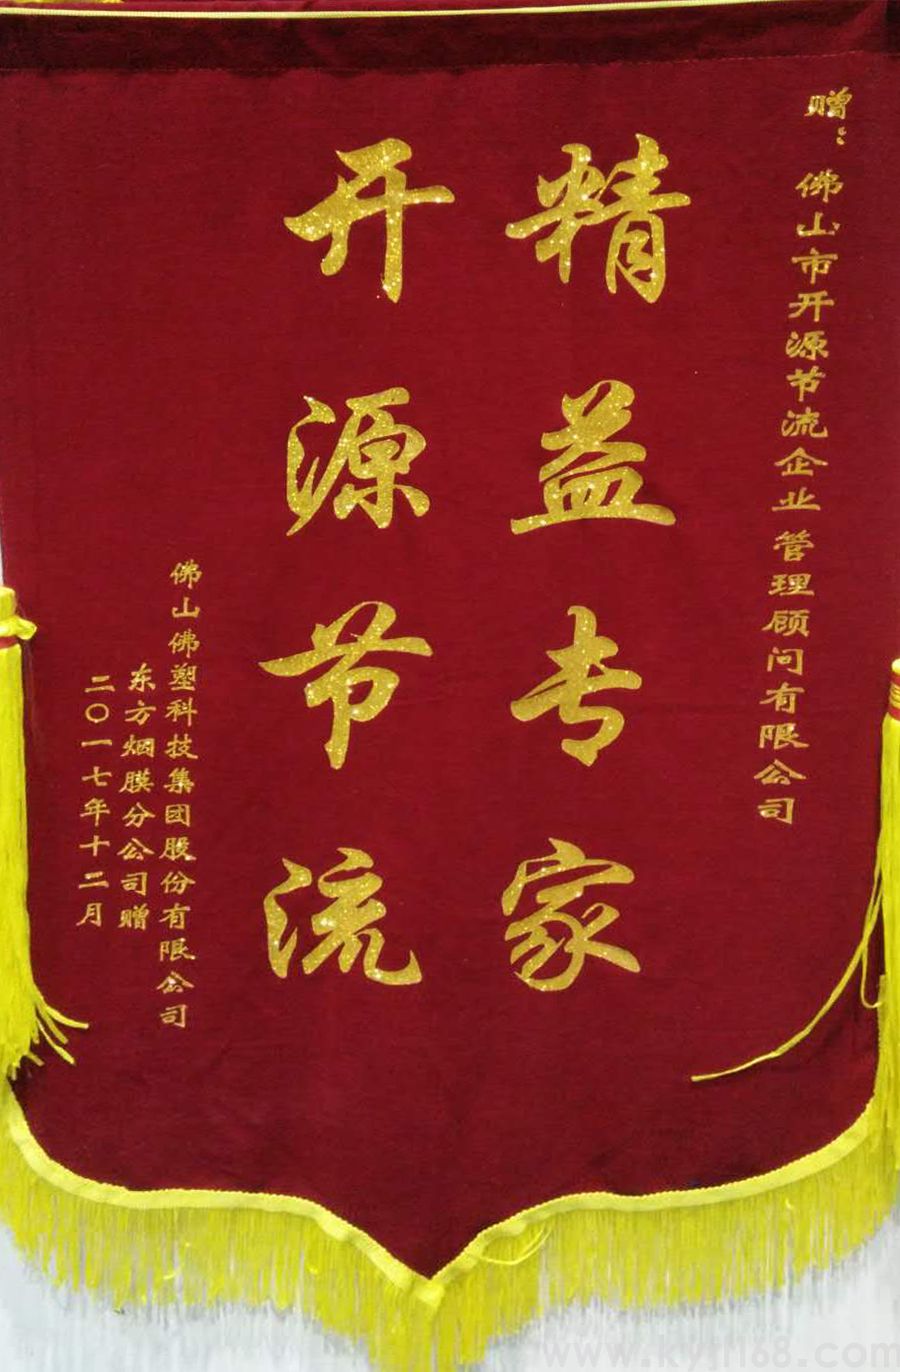 赠：佛山市开源节流企业管理顾问有限公司
精益专家
开源节流
佛山佛塑科技集团股份有限公司
东方烟膜分公司赠
二〇一七年十二月
www.kyjl168.com